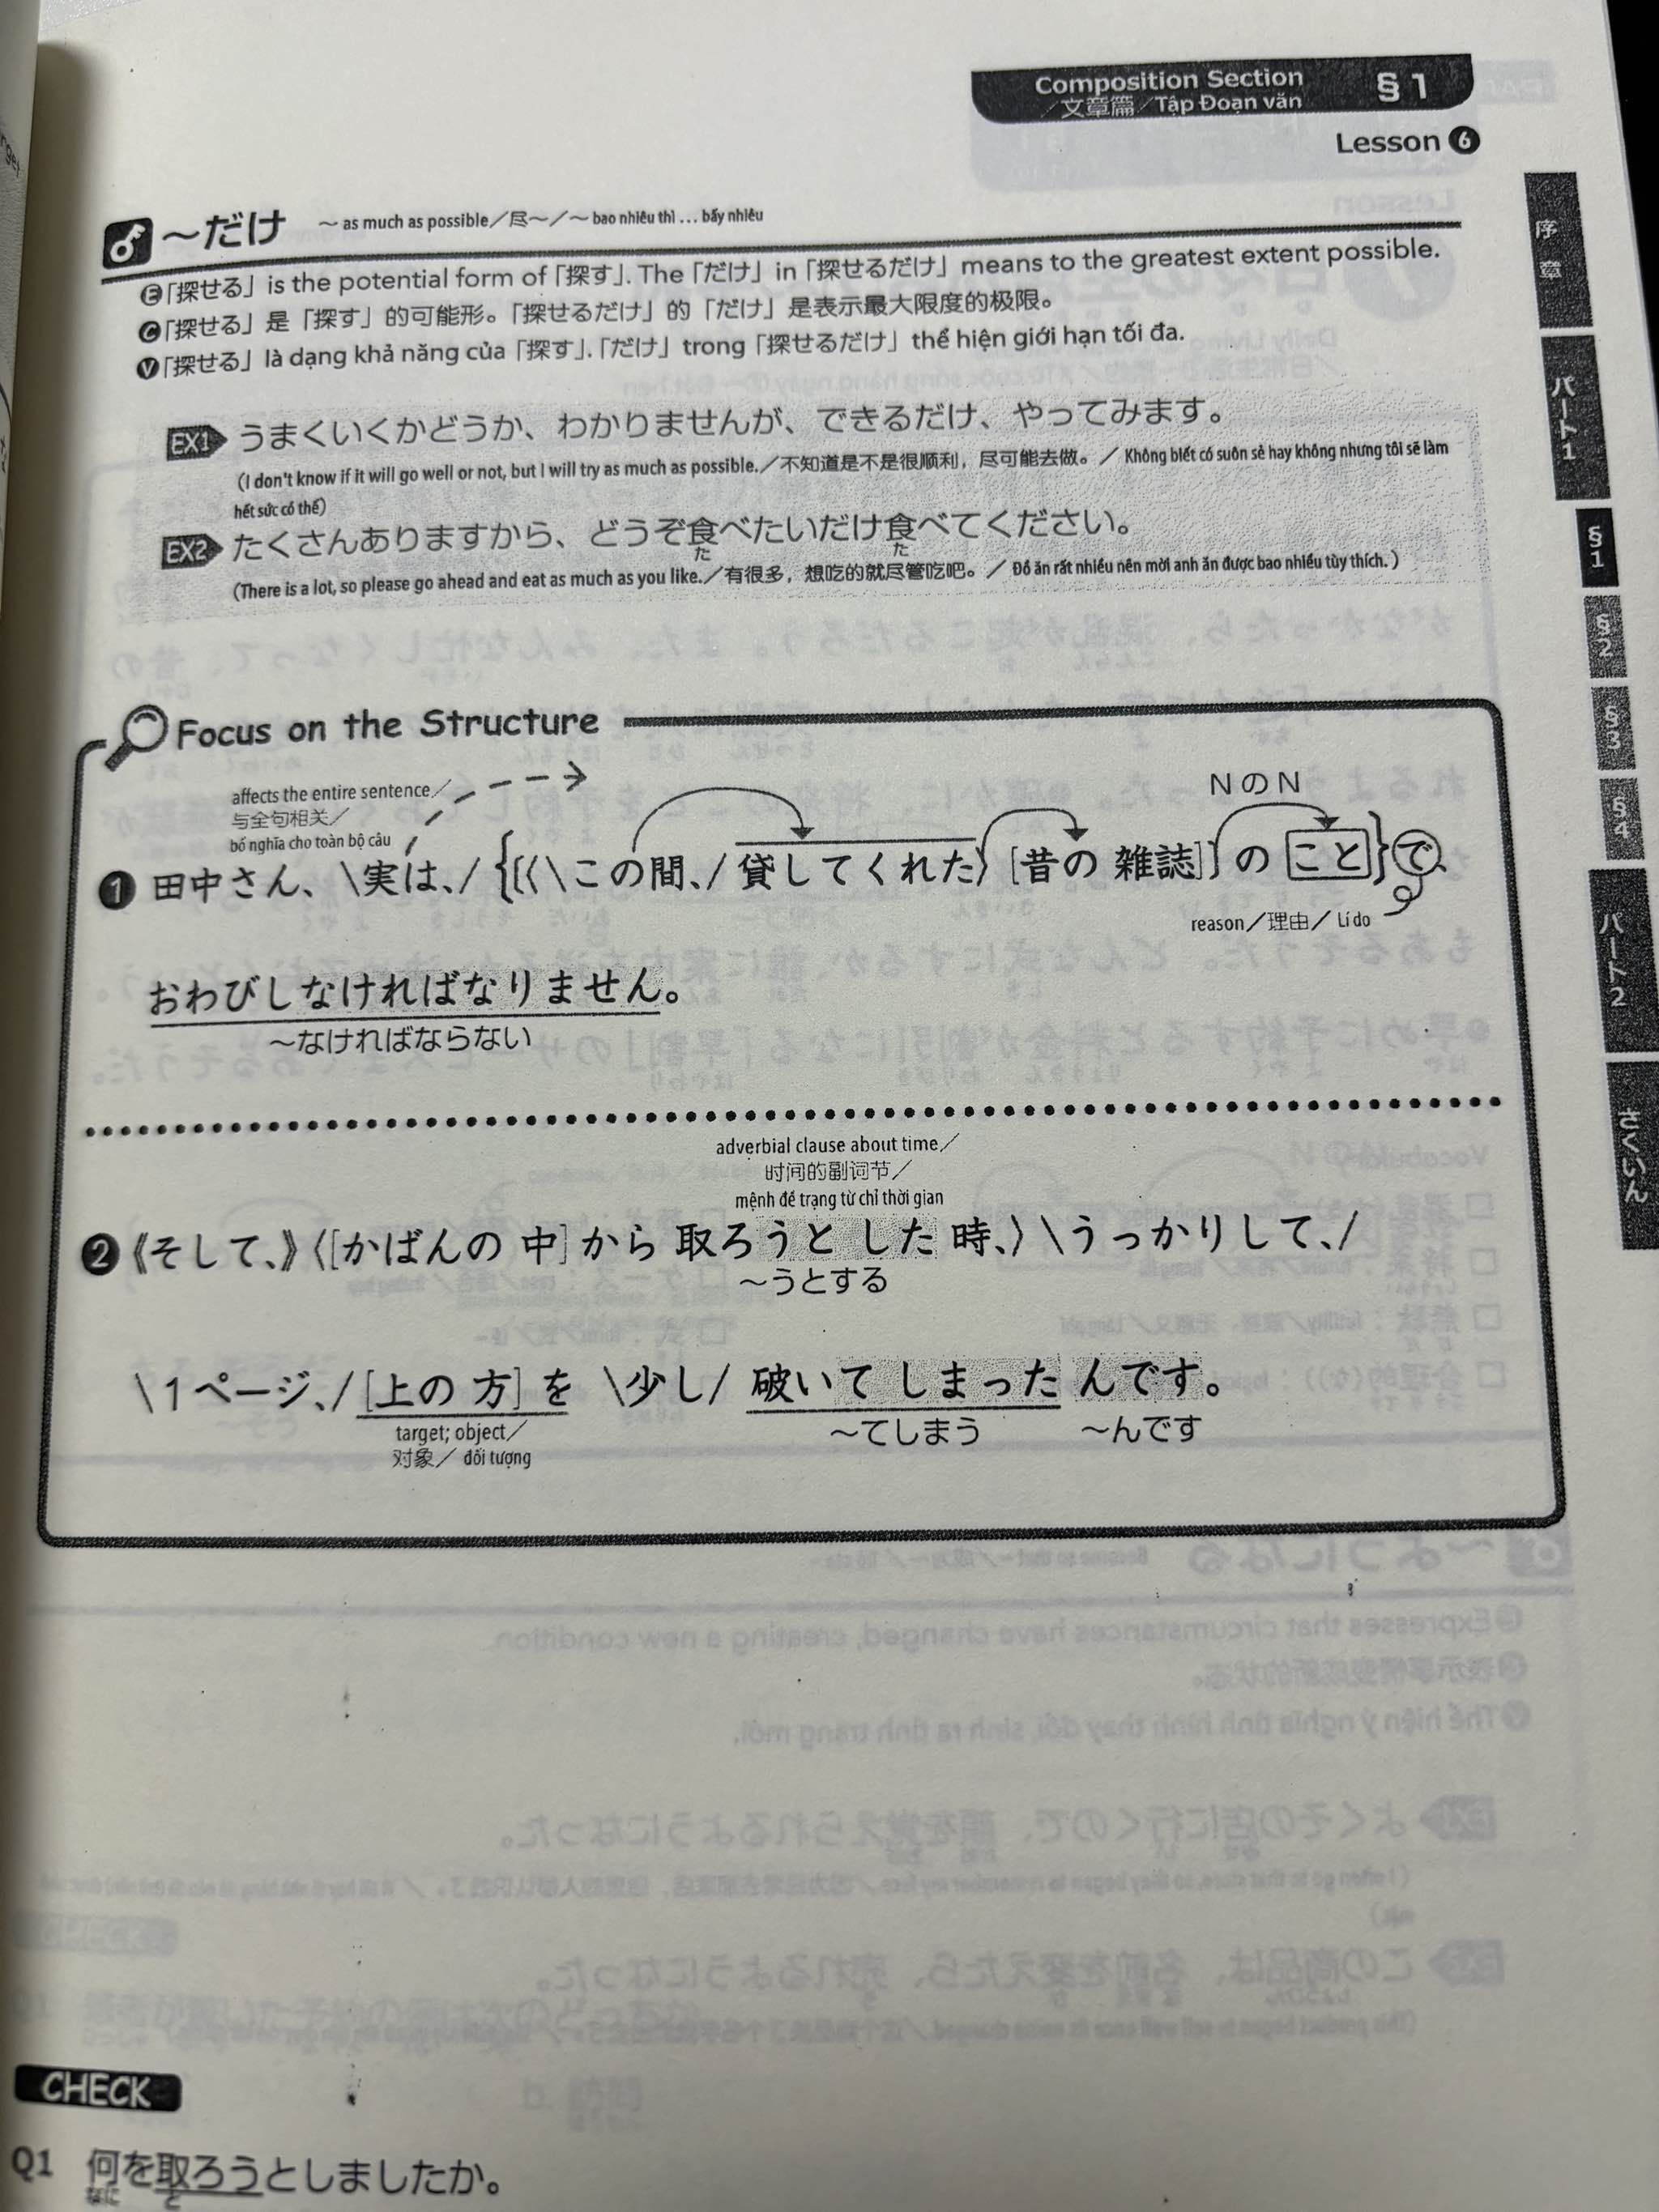 Composition Section §1
／文章篇／Tập Đoạn văn
Lesson 6
～だけ ～ as much as possible／尽～／～ bao nhiêu thì … bấy nhiêu
Ⓔ「探せる」 is the potential form of「探す」. The「だけ」in「探せるだけ」means to the greatest extent possible.
Ⓒ「探せる」是「探す」的可能形。「探せるだけ」的「だけ」是表示最大限度的极限。
Ⓥ「探せる」là dạng khả năng của「探す」.「だけ」trong「探せるだけ」thể hiện giới hạn tối đa.
EX1 うまくいくかどうか、わかりませんが、できるだけ、やってみます。
(I don't know if it will go well or not, but I will try as much as possible.／不知道是不是很顺利，尽可能去做。／ Không biết có suôn sẻ hay không nhưng tôi sẽ làm
hết sức có thể)
EX2 たくさんありますから、どうぞ食べたいだけ食べてください。
た た
(There is a lot, so please go ahead and eat as much as you like.／有很多，想吃的就尽管吃吧。／ Đồ ăn rất nhiều nên mời anh ăn được bao nhiêu tùy thích. )
Focus on the Structure
affects the entire sentence／
与全句相关／
bổ nghĩa cho toàn bộ câu
NのN
❶ 田中さん、\実は、/ {[〈\この間、/ 貸してくれた〉 [昔の 雑誌]] の こと}で、
reason／理由／ Lí do
おわびしなければなりません。
～なければならない
adverbial clause about time／
时间的副词节／
mệnh đề trạng từ chỉ thời gian
❷ 《そして、》〈[かばんの 中] から 取ろうと した 時、〉\うっかりして、/
～うとする
\１ページ、/ [上の 方] を \少し/ 破いて しまった んです。
target; object／
对象／ đối tượng
～てしまう ～んです
CHECK
Q1 何を取ろうとしましたか。
なに と
序章
パート1
§1
§2
§3
§4
パート2
さくいん